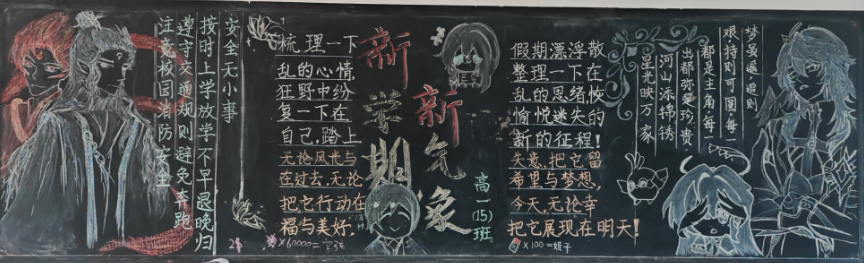 安全无小事
按时上学放学不早退晚归
遵守交通规则避免奔跑
注意校园消防安全
梳理一下
乱的心情,
狂野中纷
复一下在
自己,踏上
无论风光与
在过去,无论
把它行动在
福与美好,
新学期
新气象
高一(15)班
假期漂浮散
整理一下在
乱的思绪恢
愉悦迷失的
新的征程!
失意,把它留
希望与梦想,
今天,无论幸
把它展现在明天!
×100=
梦虽遥,追则
艰,持则可圆,每一
都是主角,每一
出都弥足珍贵
河山添锦绣
星光映万家